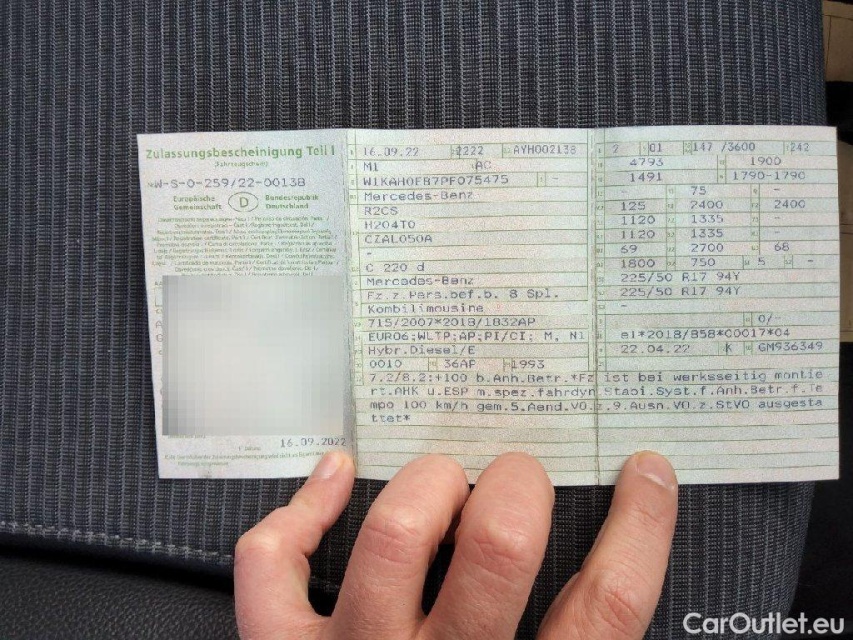 Zulassungsbescheinigung Teil I
(Fahrzeugschein)
W-S-0-259/22-00138
Europäische Gemeinschaft D Bundesrepublik Deutschland
16.09.2022
16.09.22 2222 AYH002138
M1 AC
-
Mercedes-Benz
R2CS
H204T0
CZAL050A
-
C 220 d
Mercedes-Benz
Fz.z.Pers.bef.b. 8 Spl.
Kombilimousine
715/2007*2018/1832AP
EURO6;WLTP;AP;PI/CI; M, N1
Hybr.Diesel/E
0010 36AP 1993
7.2/8.2:+100 b.Anh.Betr.*Fz
rt.AHK u.ESP m.spez.fahrdyn
mpo 100 km/h gem.5.Aend.VO.
ttet*
2 01 147 /3600 242
4793 1900
1491 1790-1790
75 -
125 2400 2400
1120 1335 -
1120 1335 -
69 2700 68
1800 750 5 -
225/50 R17 94Y
225/50 R17 94Y
-
0/-
e1*2018/858*00017*04
22.04.22 K GM936349
ist bei werksseitig montie
Stabi.Syst.f.Anh.Betr.f.Te
z.9.Ausn.VO.z.StVO ausgesta
CarOutlet.eu